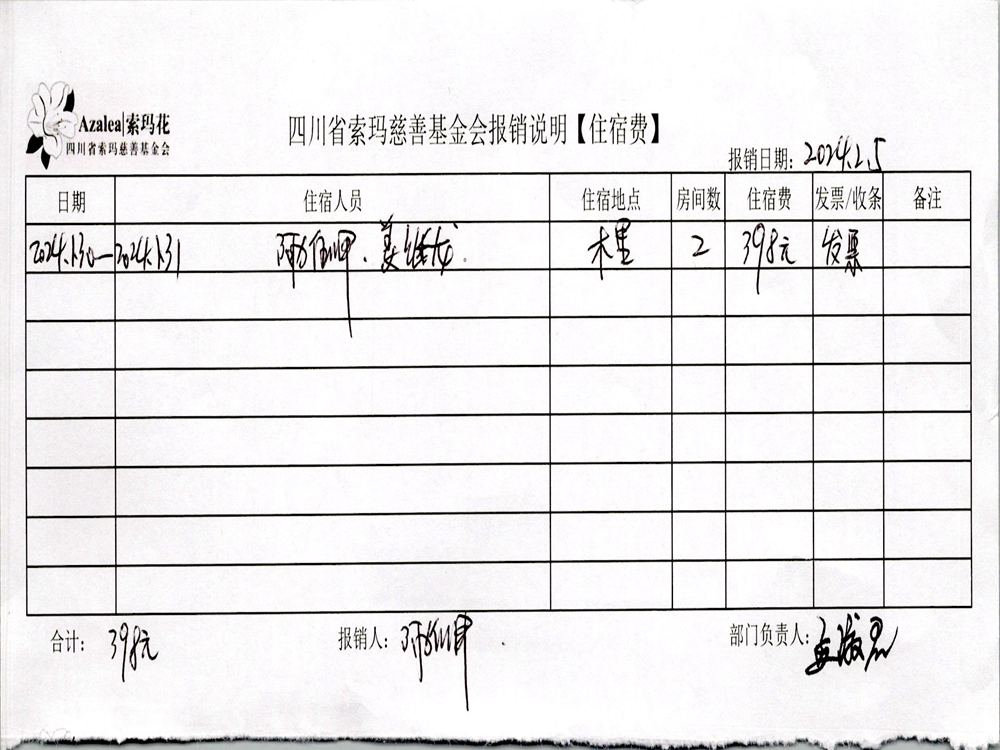 Azalea|索玛花
四川省索玛慈善基金会
四川省索玛慈善基金会报销说明【住宿费】
报销日期：2024.2.5
日期 住宿人员 住宿地点 房间数 住宿费 发票/收条 备注
2024.1.30—2024.1.31 木里 2 398元 发票
合计：398元 报销人： 部门负责人：